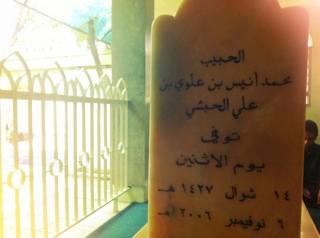 الحبيب
محمد أنيس بن علوي بن
علي الحبشي
توفي
يوم الاثنين
١٤ شوال ١٤٢٧ هـ
٦ نوفيمبر ٢٠٠٦ مـ